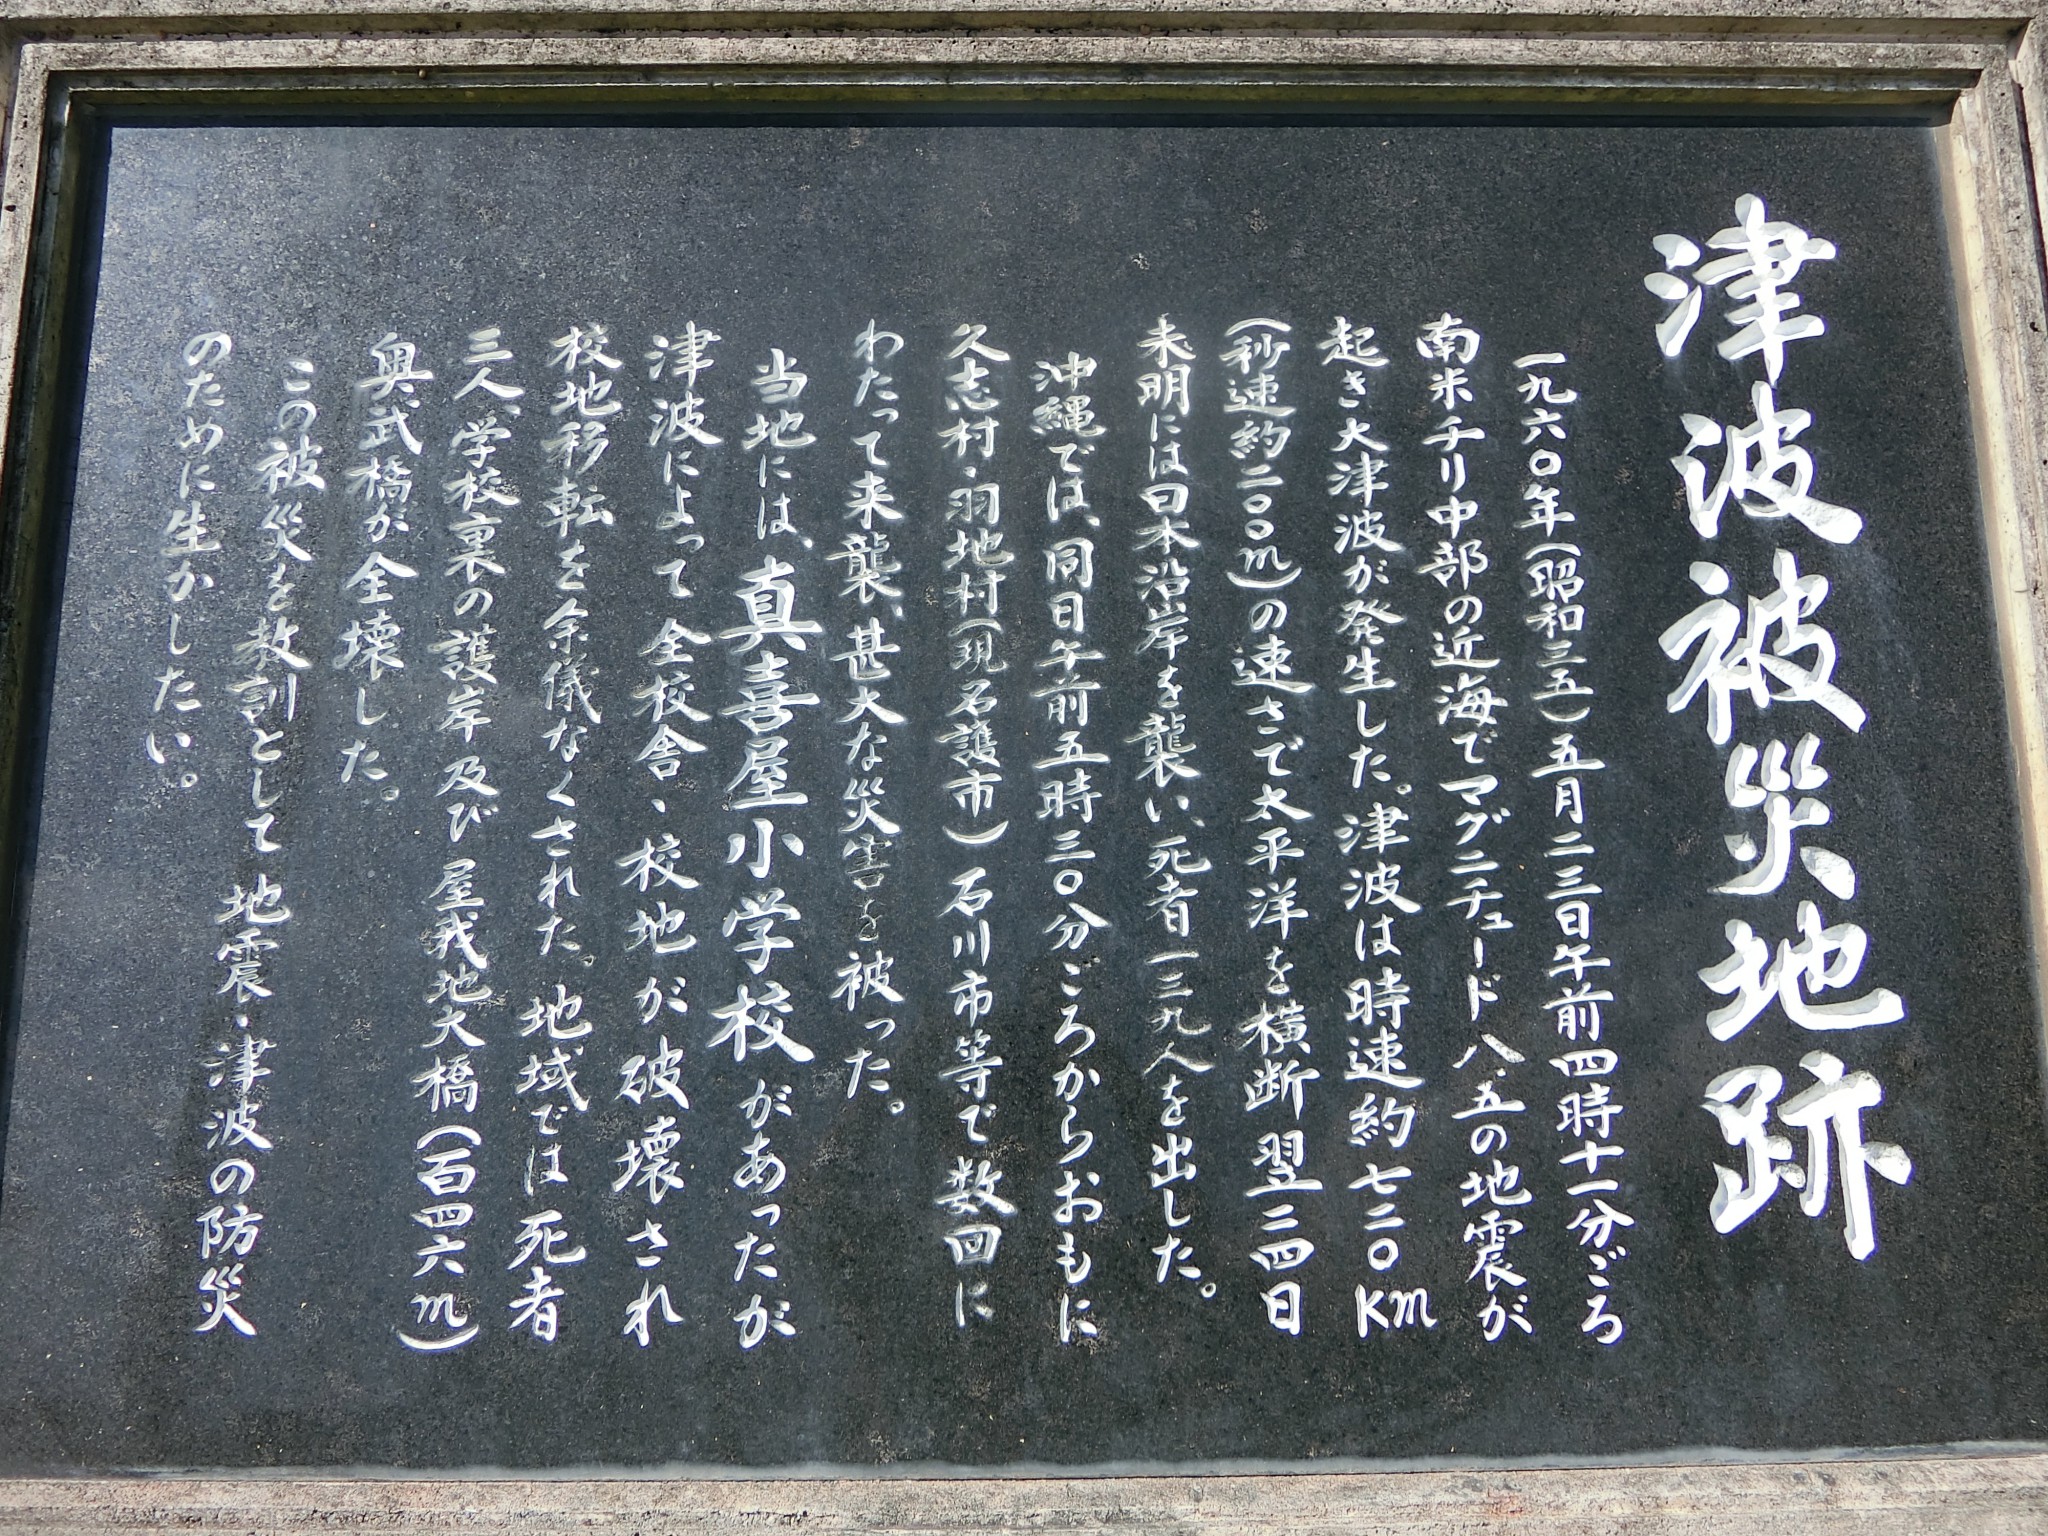 津波被災地跡
一九六〇年(昭和三五)五月二三日午前四時十一分ごろ
南米チリ中部の近海でマグニチュード八.五の地震が
起き大津波が発生した。津波は時速約七二〇km
(秒速約二〇〇m)の速さで太平洋を横断翌二四日
未明には日本沿岸を襲い、死者一三九人を出した。
沖縄では、同日午前五時三〇分ごろからおもに
久志村・羽地村(現名護市)石川市等で数回に
わたって来襲、甚大な災害を被った。
当地には、真喜屋小学校があったが
津波によって全校舎、校地が破壊され
校地移転を余儀なくされた。地域では死者
三人、学校裏の護岸及び屋我地大橋(百四六m)
奥武橋が全壊した。
この被災を教訓として地震・津波の防災
のために生かしたい。